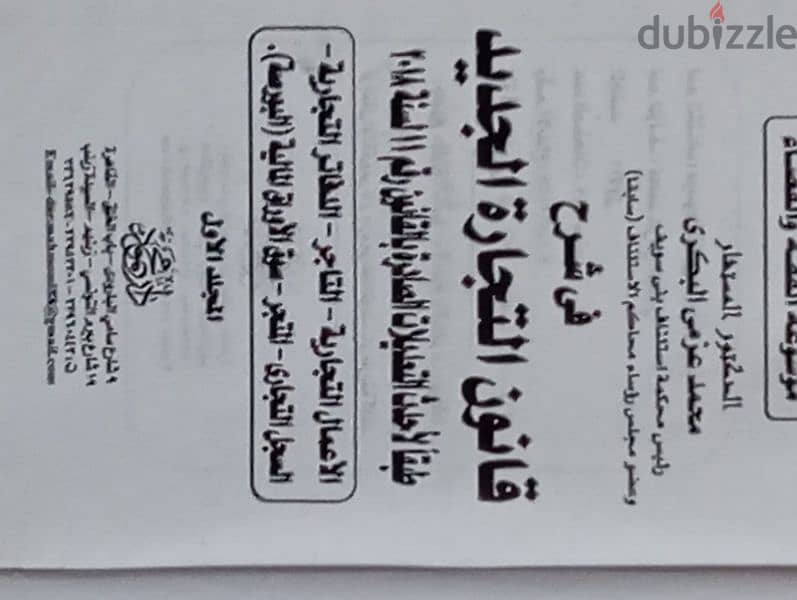 dubizzle
موسوعة الفقه والقضاء
الدكتور المستشار
محمد عزمى البكرى
رئيس محكمة استئناف بنى سويف
وعضو مجلس رؤساء محاكم الاستئناف (سابقا)
فى شرح
قانون التجارة الجديد
طبقاً لأحدث التعديلات الصادرة بالقانون رقم ١١ لسنة ٢٠١٨
الاعمال التجارية - التاجر - الدفاتر التجارية -
السجل التجارى - المتجر - سوق الأوراق المالية (البورصة).
المجلد الأول